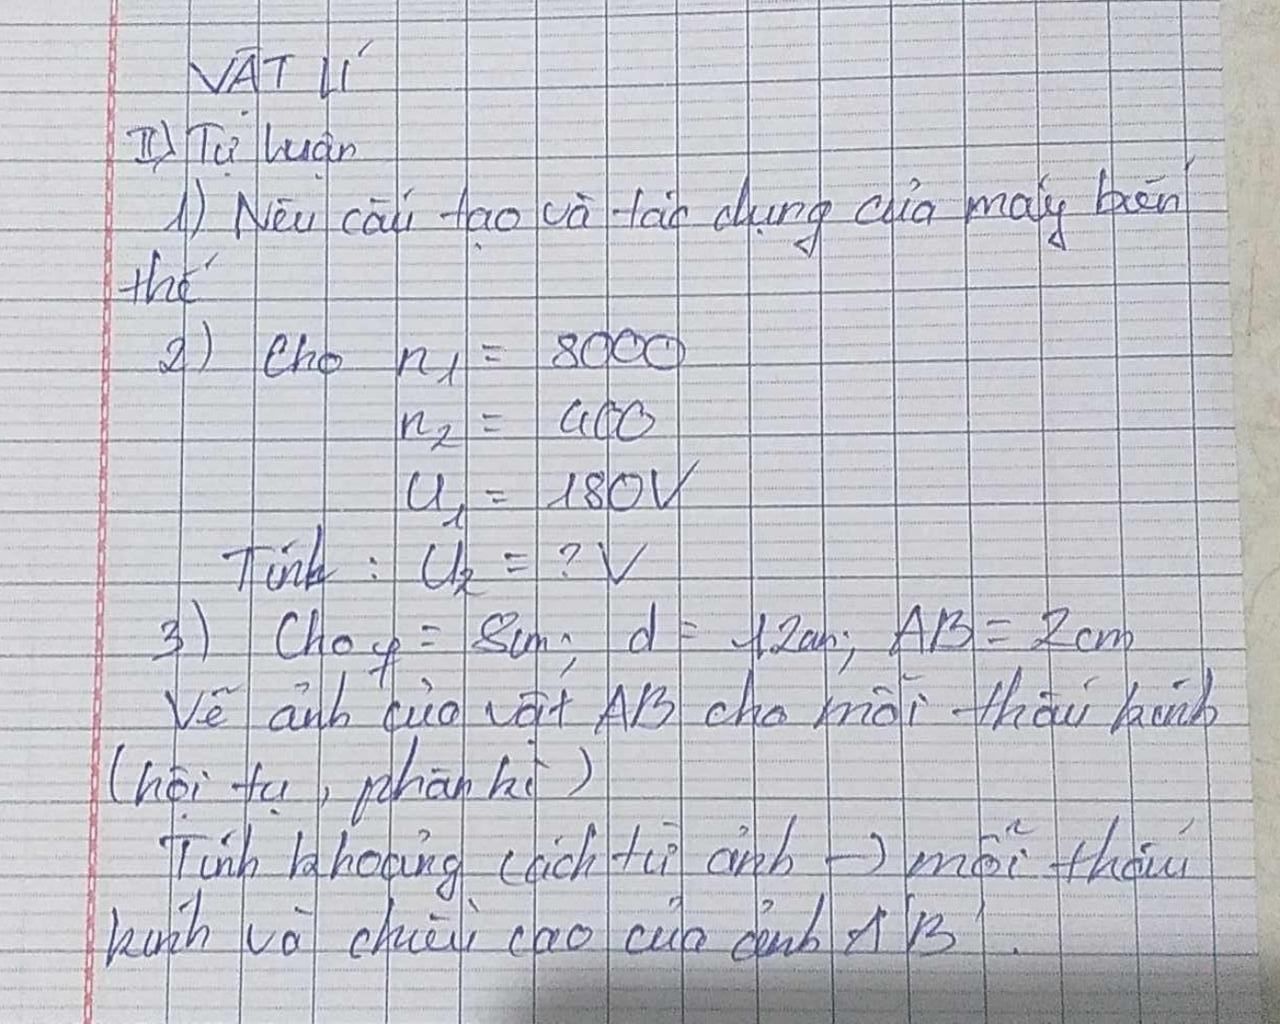 VẬT LÍ
II) Tự luận
1) Nêu cấu tạo và tác dụng của máy biến
thế
2) Cho n₁ = 8000
n₂ = 400
U₁ = 180V
Tính : U₂ = ? V
3) Cho f = 8cm; d = 12cm; AB = 2cm
Vẽ ảnh của vật AB cho mỗi thấu kính
(hội tụ, phân kì)
Tính khoảng cách từ ảnh → mỗi thấu
kính và chiều cao của ảnh A'B'.